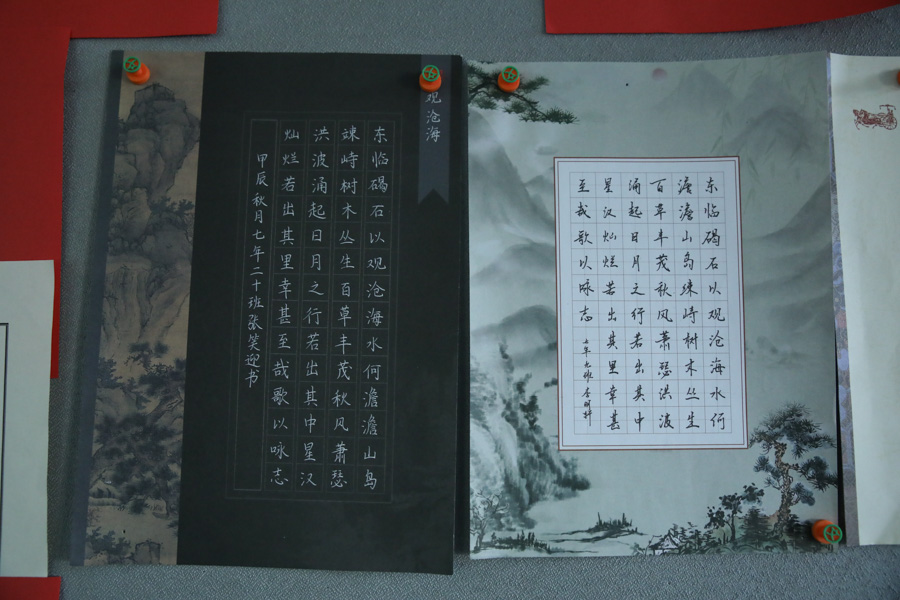 观沧海
东临碣石以观沧海水何澹澹山岛
竦峙树木丛生百草丰茂秋风萧瑟
洪波涌起日月之行若出其中星汉
灿烂若出其里幸甚至哉歌以咏志
甲辰秋月七年二十班张笑迎书
东临碣石以观沧海水何
澹澹山岛竦峙树木丛生
百草丰茂秋风萧瑟洪波
涌起日月之行若出其中
星汉灿烂若出其里幸甚
至哉歌以咏志
七年九班李